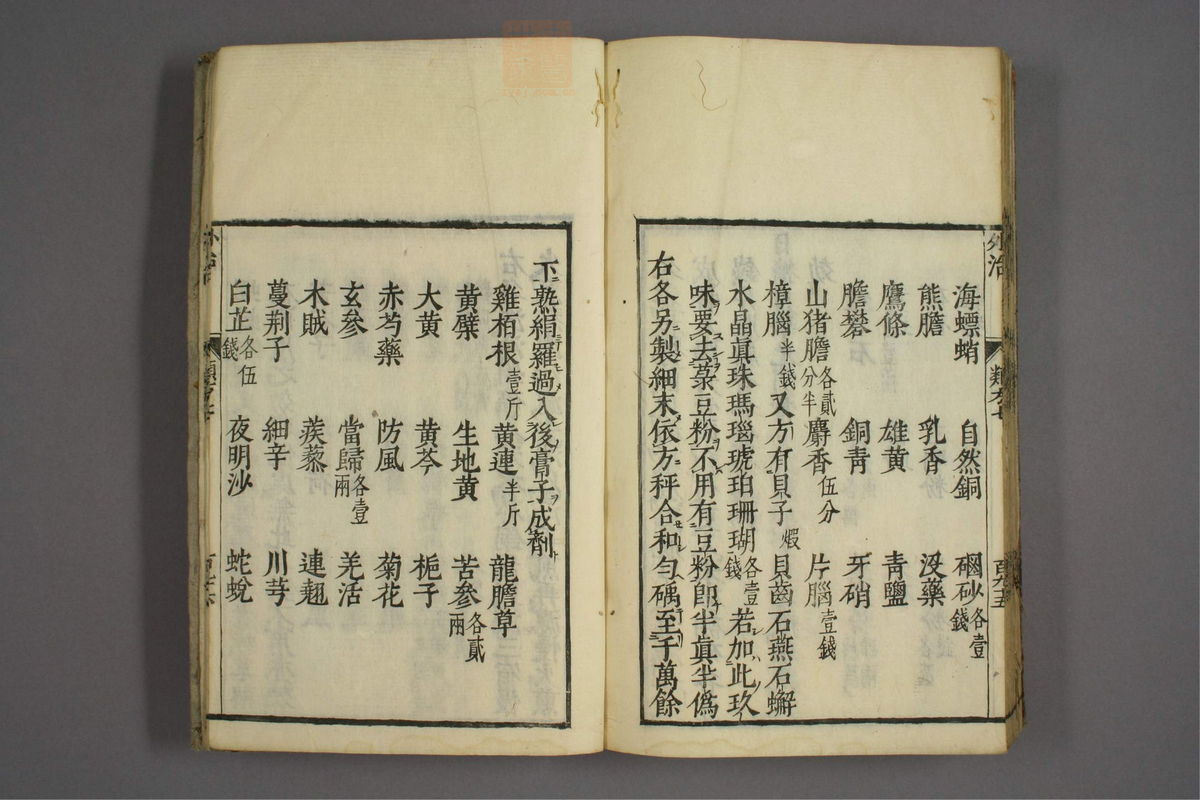 外治
海螵蛸 自然銅 硇砂各壹錢
熊膽 乳香 沒藥
鷹條 雄黃 青鹽
膽礬 銅青 牙硝
山猪膽各貳分半 麝香伍分 片腦壹錢
樟腦半錢 又方有貝子煆 貝齒石燕石蠏
水晶真珠瑪瑙琥珀珊瑚各壹錢 若加此玖
味要去菉豆粉不用有豆粉即半真半偽
右各另製細末依方秤合和勻碾至千萬餘
下熟絹羅過入後膏子成劑
雞栢根壹斤 黃連半斤 龍膽草
黃蘗 生地黃 苦參各貳兩
大黃 黃芩 梔子
赤芍藥 防風 菊花
玄參 當歸各壹兩 羌活
木賊 蒺藜 連翹
蔓荆子 細辛 川芎
白芷各伍錢 夜明沙 蛇蛻